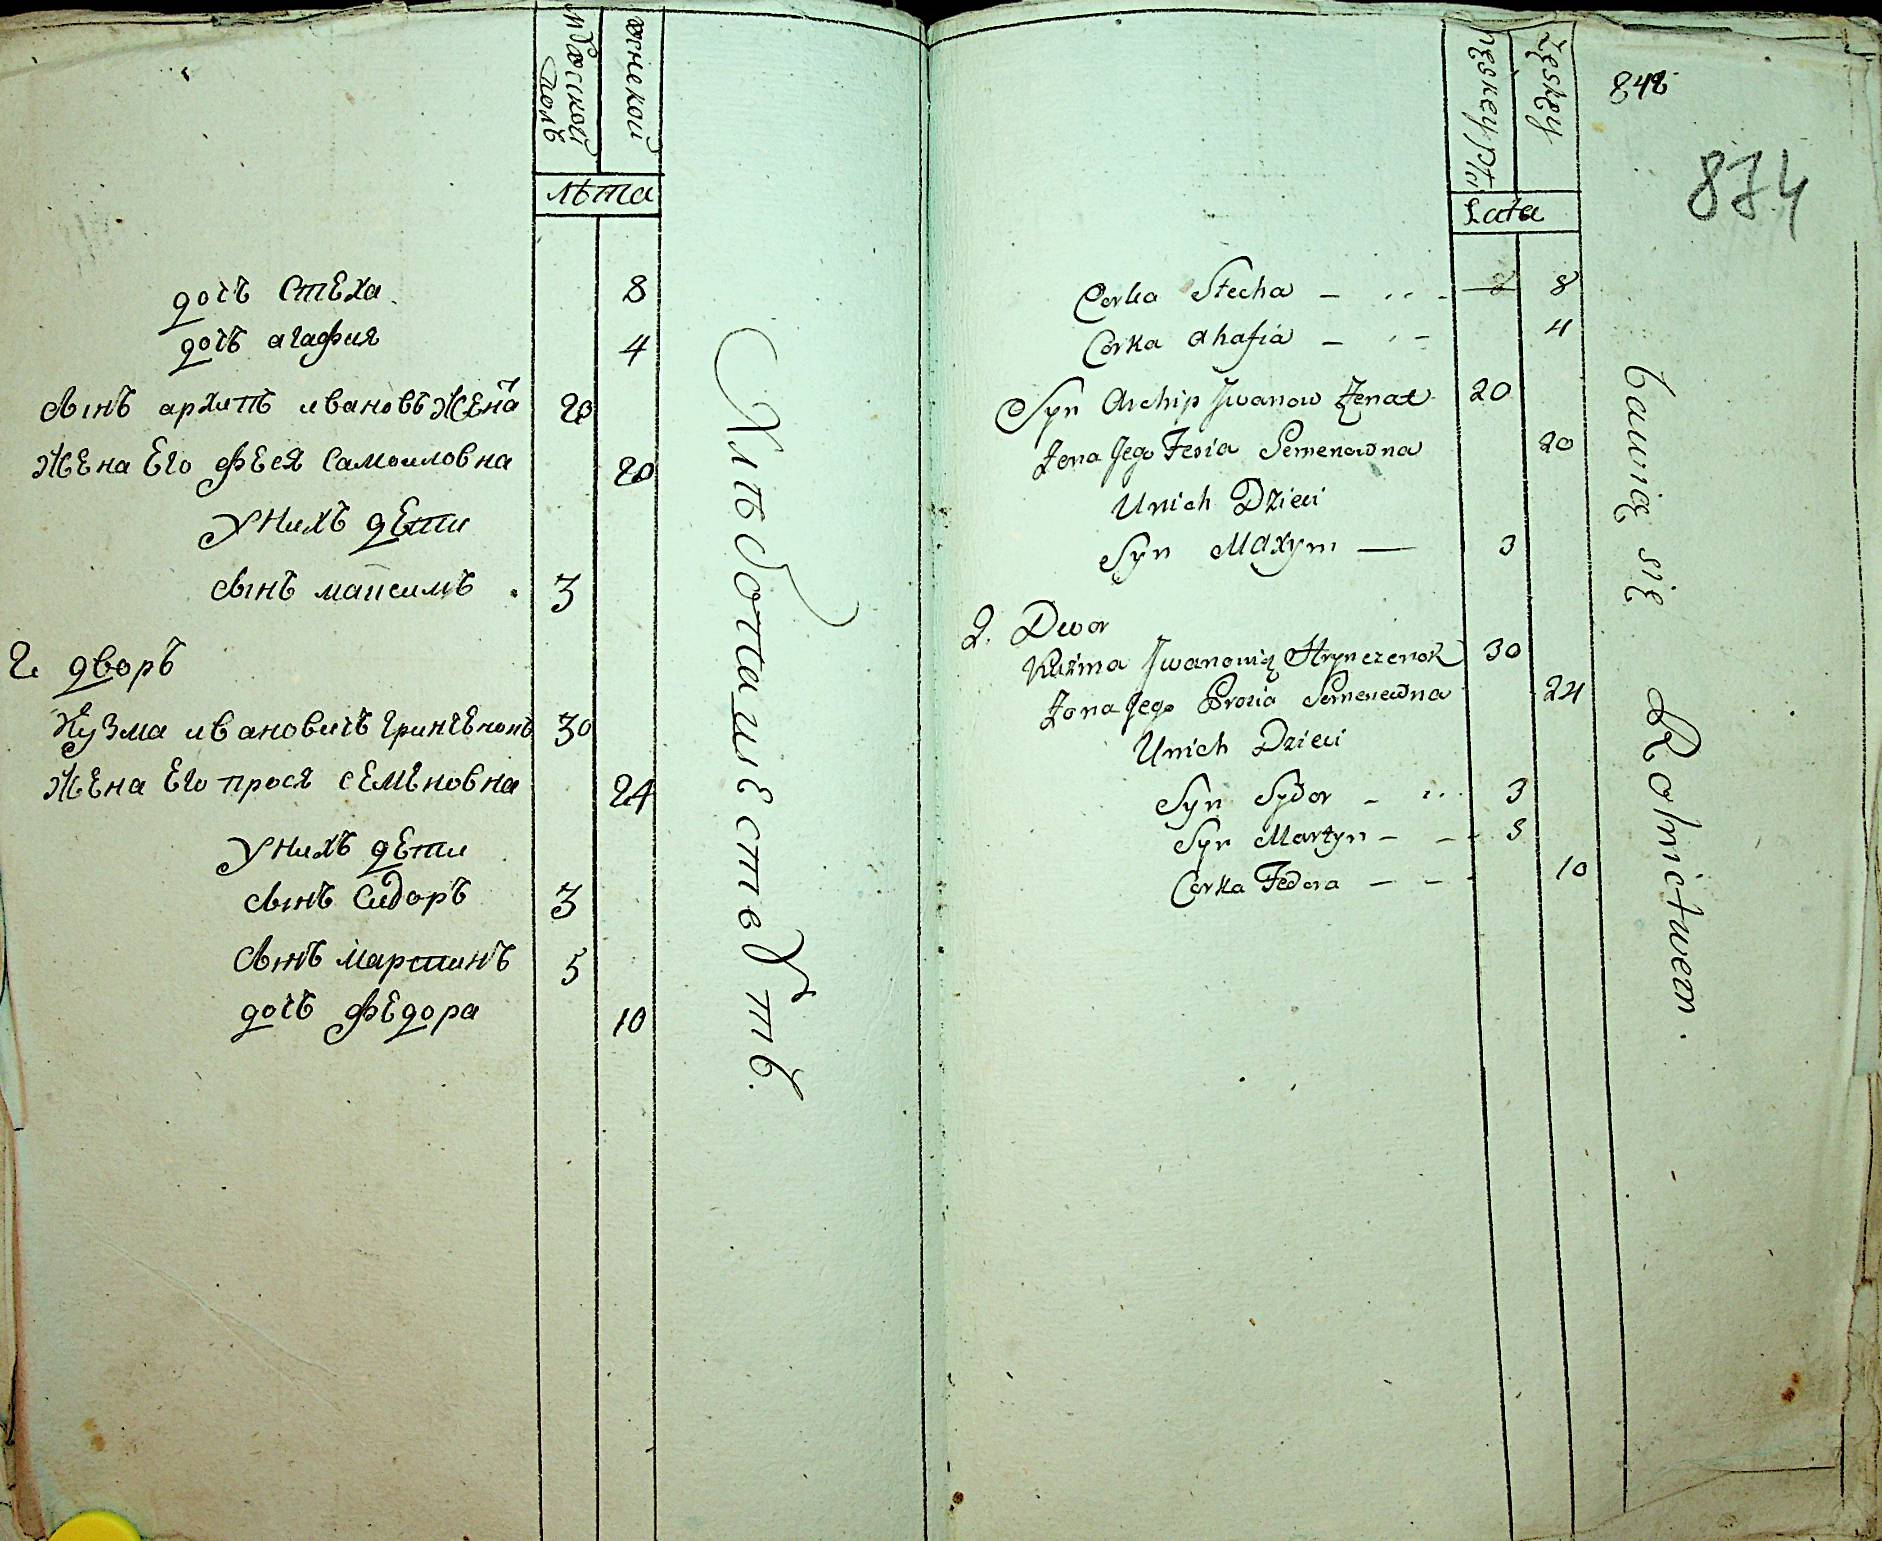 мужской
полъ
женской
лѣта
дочь Стеха 8
дочь агафия 4
сынъ архипъ ивановъ жена 20
жена Его феся самоиловна 20
у нихъ дети
сынъ максимъ 3
2. дворъ
Кузма ивановичъ гринченокъ 30
жена Его прося семеновна 24
у нихъ дети
сынъ Сидоръ 3
сынъ мартинъ 5
дочь федора 10
Хлѣбопашествѣ
męskey Płci
Zęskey
Lata
848
874
Corka Stecha 8 8
Corka Ahafia 4
Syn Archip Jwanow Zenat 20
Zona Jego Fesia Semenowna 20
Unich Dzieci
Syn Maxym 3
2. Dwor
Kuźma Jwanowicz Hrynczenok 30
Zona Jego Prosia Semenowna 24
Unich Dzieci
Syn Sydor 3
Syn Martyn 5
Corka Fedora 10
bawią się Rolnictwem.